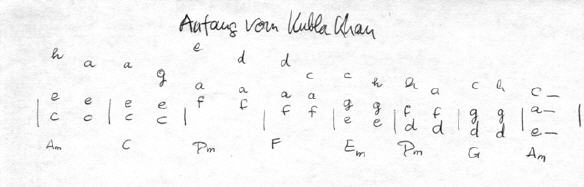 Anfang vom Kubla Khan
h a a g e d d c c h h a c h c–
| e e | e e | a a | a a | g g | f f | g g | a– |
c c c c f f f f e e d d d d e–
Am C Dm F Em Dm G Am